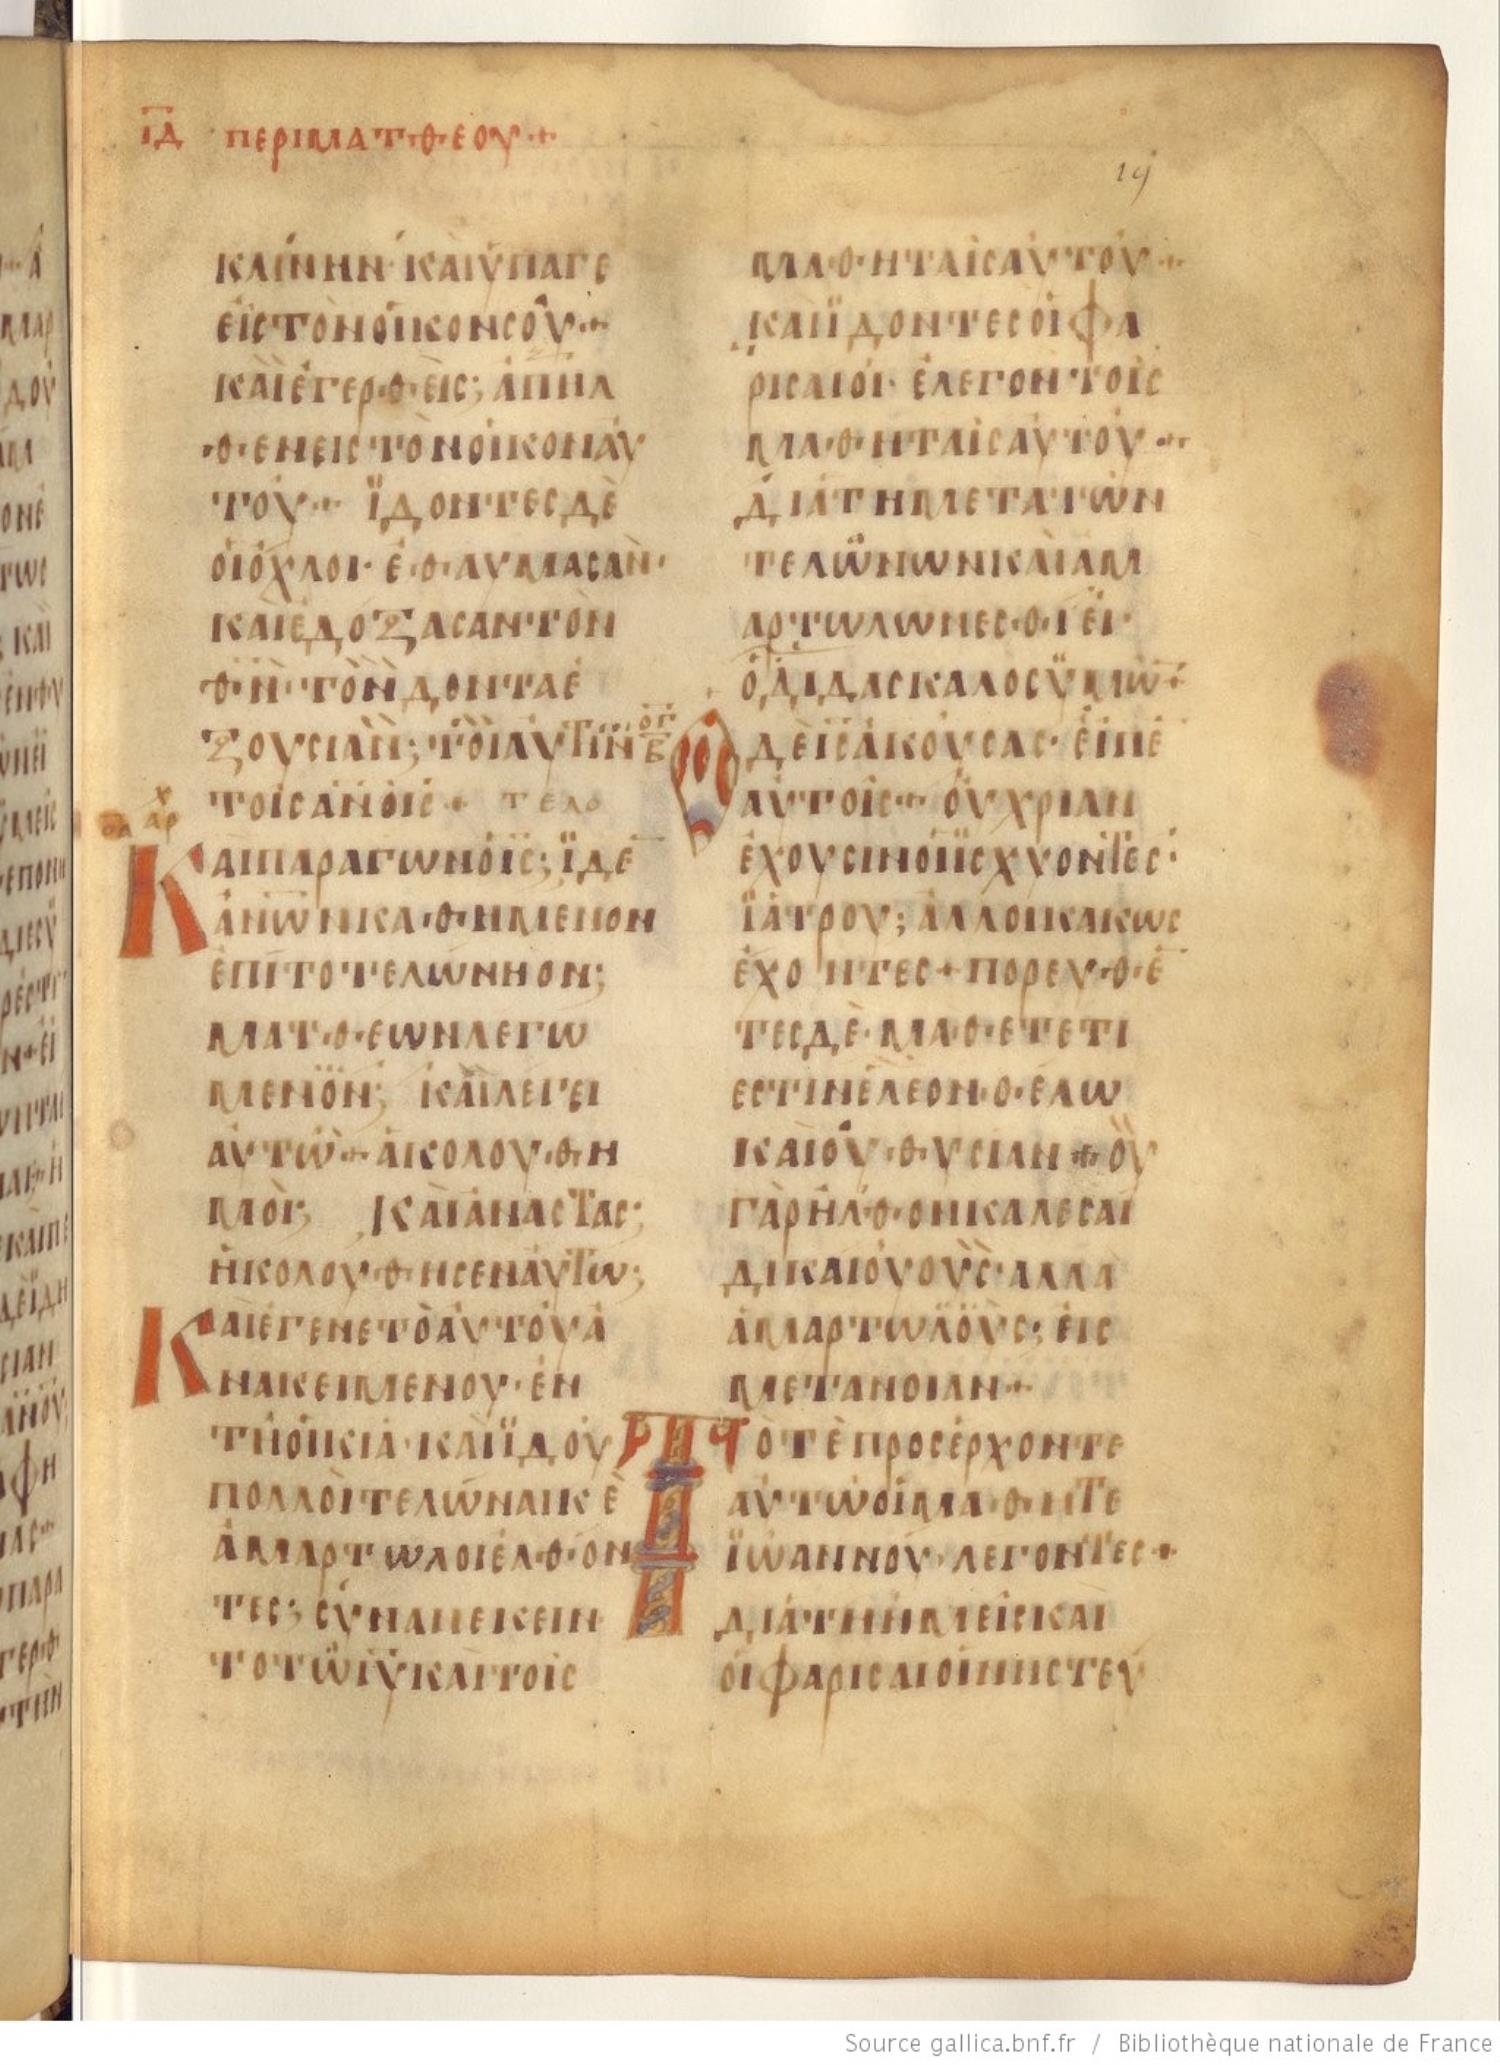 ΙΔ ΠΕΡΙ ΜΑΤΘΕΟΥ+
19
ΚΛΙΝΗΝ· ΚΑΙ ΥΠΑΓΕ
ΕΙΣ ΤΟΝ ΟΙΚΟΝ ΣΟΥ+
ΚΑΙ ΕΓΕΡΘΕΙΣ; ΑΠΗΛ
ΘΕΝ ΕΙΣ ΤΟΝ ΟΙΚΟΝ ΑΥ
ΤΟΥ+ ΪΔΟΝΤΕΣ ΔΕ
ΟΙ ΟΧΛΟΙ· ΕΘΑΥΜΑΣΑΝ·
ΚΑΙ ΕΔΟΞΑΣΑΝ ΤΟΝ
ΘΝ· ΤΟΝ ΔΟΝΤΑ Ε
ΞΟΥΣΙΑΝ; ΤΟΙΑΥΤΙΝ
ΤΟΙΣ ΑΝΟΙΣ+ ΤΕΛΟ
ΚΑΙ ΠΑΡΑΓΩΝ Ο ΙΣ; ΪΔΕ
ΑΝΩΝ ΚΑΘΗΜΕΝΟΝ
ΕΠΙ ΤΟ ΤΕΛΩΝΗΟΝ;
ΜΑΤΘΕΩΝ ΛΕΓΩ
ΜΕΝΟΝ; ΚΑΙ ΛΕΓΕΙ
ΑΥΤΩ+ ΑΚΟΛΟΥΘΗ
ΜΟΙ; ΚΑΙ ΑΝΑΣΤΑΣ;
ΗΚΟΛΟΥΘΗΣΕΝ ΑΥΤΩ;
ΚΑΙ ΕΓΕΝΕΤΟ ΑΥΤΟΥ Α
ΝΑΚΕΙΜΕΝΟΥ· ΕΝ
ΤΗ ΟΙΚΙΑ· ΚΑΙ ΪΔΟΥ
ΠΟΛΛΟΙ ΤΕΛΩΝΑΙ Κ Ε
ΑΜΑΡΤΩΛΟΙ ΕΛΘΟΝ
ΤΕΣ; ΣΥΝΑΠΕΚΕΙΝ
ΤΟ ΤΩ ΙΥ ΚΑΙ ΤΟΙΣ
ΜΑΘΗΤΑΙΣ ΑΥΤΟΥ+
ΚΑΙ ΪΔΟΝΤΕΣ ΟΙ ΦΑ
ΡΙΣΑΙΟΙ· ΕΛΕΓΟΝ ΤΟΙΣ
ΜΑΘΗΤΑΙΣ ΑΥΤΟΥ+
ΔΙΑΤΗ ΜΕΤΑ ΤΩΝ
ΤΕΛΩΝΩΝ ΚΑΙ ΑΜ
ΑΡΤΩΛΩΝ ΕΣΘΙΕΙ·
Ο ΔΙΔΑΣΚΑΛΟΣ ΥΜΩ+
Ο ΔΕ ΙΣ ΑΚΟΥΣΑΣ· ΕΙΠΕ
ΑΥΤΟΙΣ+ ΟΥ ΧΡΙΑΝ
ΕΧΟΥΣΙΝ ΟΙ ΙΣΧΥΟΝΤΕΣ·
ΪΑΤΡΟΥ; ΑΛΛ ΟΙ ΚΑΚΩΣ
ΕΧΟΝΤΕΣ+ ΠΟΡΕΥΘΕ
ΤΕΣ ΔΕ· ΜΑΘΕΤΕ ΤΙ
ΕΣΤΙΝ ΕΛΕΟΝ ΘΕΛΩ
ΚΑΙ ΟΥ ΘΥΣΙΑΝ+ ΟΥ
ΓΑΡ ΗΛΘΟΝ ΚΑΛΕΣΑΙ
ΔΙΚΑΙΟΥΟΥΣ· ΑΛΛΑ
ΑΜΑΡΤΩΛΟΥΣ; ΕΙΣ
ΜΕΤΑΝΟΙΑΝ+
ΤΟΤΕ ΠΡΟΣΕΡΧΟΝΤΕ
ΑΥΤΩ ΟΙ ΜΑΘΗΤΕ
ΪΩΑΝΝΟΥ· ΛΕΓΟΝΤΕΣ+
ΔΙΑΤΗ ΗΜΕΙΣ ΚΑΙ
ΟΙ ΦΑΡΙΣΑΙΟΙ ΝΗΣΤΕΥ
Source gallica.bnf.fr / Bibliothèque nationale de France